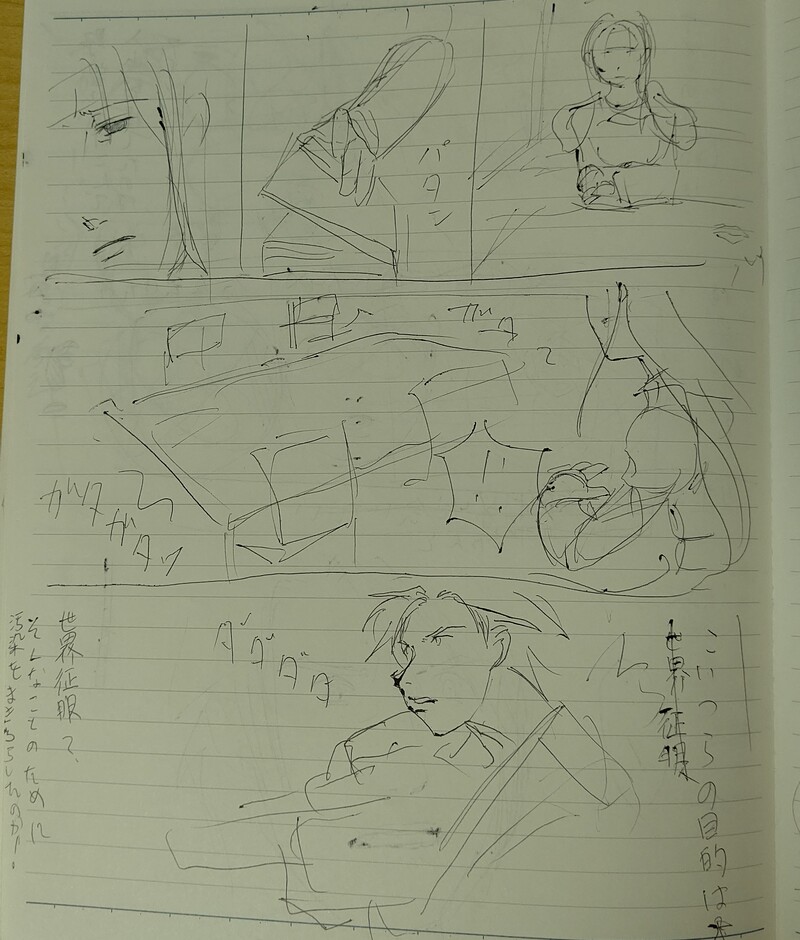 パタン
ガタ
ガタガタッ
こいつらの目的は
世界征服
ダダダダ
世界征服？
そんなことのために
汚染をまきちらしたのか！